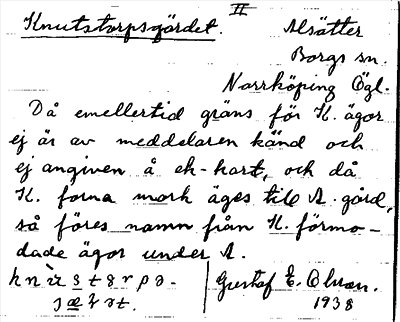 II
Knutstorpsgärdet. Alsätter
Borgs sn.
Norrköping Ögl.
Då emellertid gräns för K. ägor
ej är av meddelaren känd och
ej angiven å ek-kart, och då
K. forna mark äges till A. gård,
så föres namn från K. förmo-
dade ägor under A.
Gustaf E. Olson.
1938